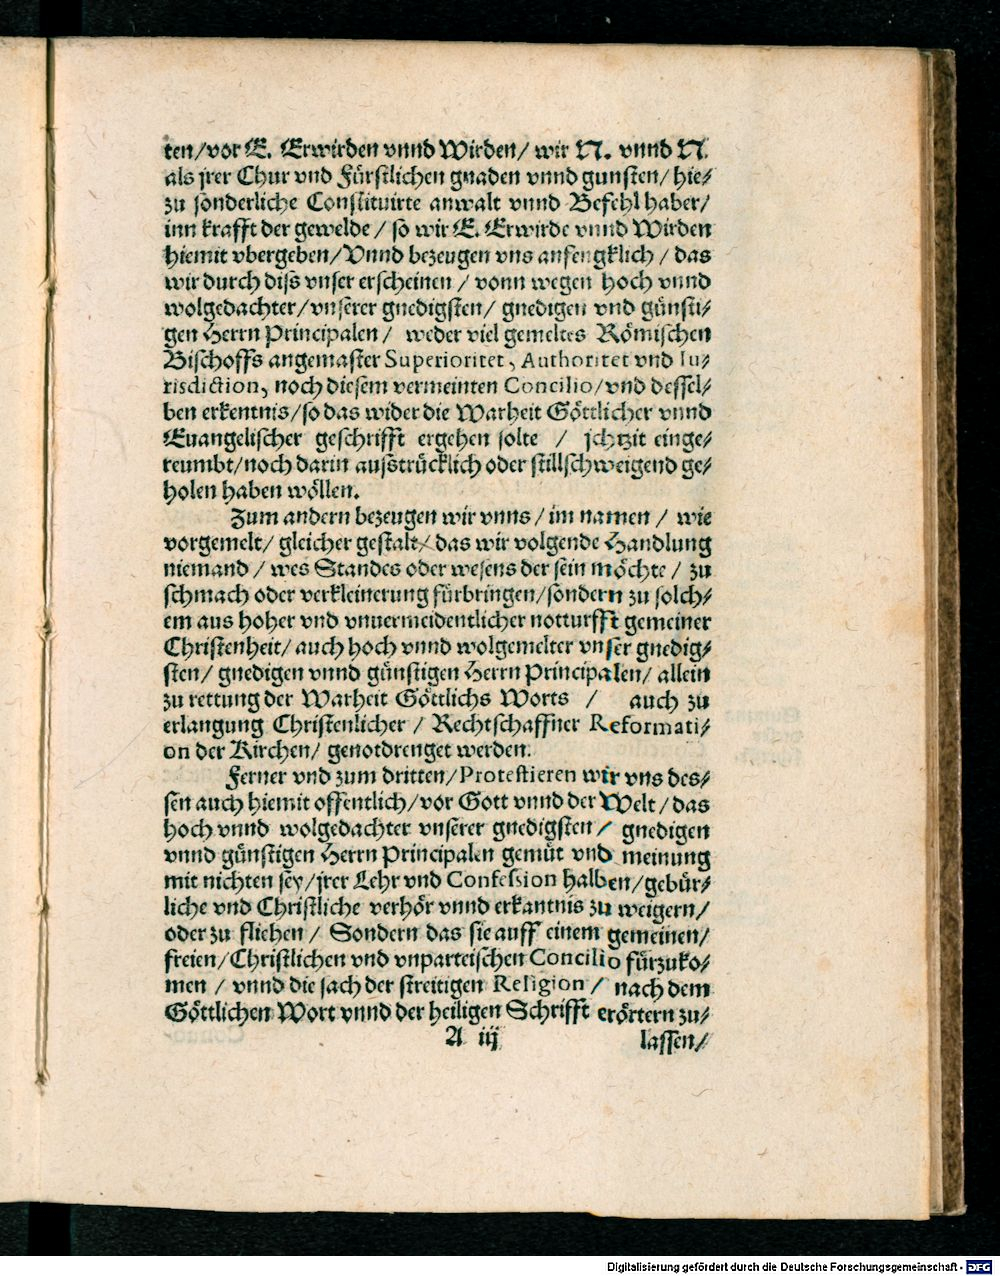 ten/vor E. Erwirden vnnd Wirden/ wir N. vnnd N.
als jrer Chur vnd Fürstlichen gnaden vnnd gunsten/ hie⸗
zu sonderliche Constituirte anwalt vnnd Befehlhaber/
inn krafft der gewelde / so wir E. Erwirde vnnd Wirden
hiemit vbergeben/ Vnnd bezeugen vns anfengklich / das
wir durch diss vnser erscheinen / vonn wegen hoch vnnd
wolgedachter/ vnserer gnedigsten/ gnedigen vnd günsti⸗
gen Herrn Principalen / weder viel gemeltes Römischen
Bischoffs angemaster Superioritet, Authoritet vnd Iu⸗
risdiction, noch diesem vermeinten Concilio/ vnd dessel⸗
ben erkentnis/ so das wider die Warheit Göttlicher vnnd
Euangelischer geschrifft ergehen solte / jchtzit einge⸗
reumbt/ noch darin ausstrücklich oder stillschweigend ge⸗
holen haben wöllen.
Zum andern bezeugen wir vnns / im namen / wie
vorgemelt/ gleicher gestalt/ das wir volgende Handlung
niemand / wes Standes oder wesens der sein möchte / zu
schmach oder verkleinerung fürbringen/ sondern zu solch⸗
em aus hoher vnd vnuermeidentlicher notturfft gemeiner
Christenheit/ auch hoch vnnd wolgemelter vnser gnedig⸗
sten/ gnedigen vnnd günstigen Herrn Principalen/ allein
zu rettung der Warheit Göttlichs Worts / auch zu
erlangung Christenlicher / Rechtschaffner Reformati⸗
on der Kirchen/ genotdrenget werden.
Ferner vnd zum dritten/ Protestieren wir vns des⸗
sen auch hiemit offentlich/ vor Gott vnnd der Welt / das
hoch vnnd wolgedachter vnserer gnedigsten / gnedigen
vnnd günstigen Herrn Principalen gemüt vnd meinung
mit nichten sey/ jrer Lehr vnd Confession halben/ gebür⸗
liche vnd Christliche verhör vnnd erkantnis zu weigern/
oder zu fliehen / Sondern das sie auff einem gemeinen/
freien/ Christlichen vnd vnparteischen Concilio fürzuko⸗
men / vnnd die sach der streitigen Religion / nach dem
Göttlichen Wort vnnd der heiligen Schrifft erörtern zu⸗
A iij lassen/
Digitalisierung gefördert durch die Deutsche Forschungsgemeinschaft - DFG